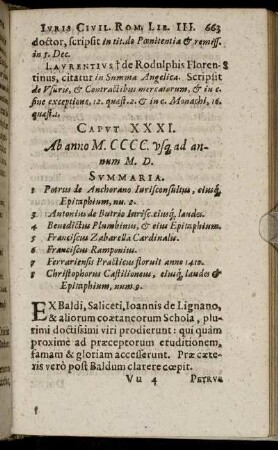 IVRIS CIVIL. ROM. LIB. III. 663
doctor, scripsit in tit. de Pœnitentia & remiss.
in 5. Dec.
LAVRENTIVS † de Rodulphis Floren- 8
tinus, citatur in Summa Angelica. Scripsit
de Vsuris, & Contractibus mercatorum, & in c.
sine exceptione, 12. quæst. 2. & in c. Monachi, 16.
quæst. 1.
CAPVT XXXI.
Ab anno M. CCCC. vsq; ad an-
num M. D.
SVMMARIA.
1 Petrus de Anchorano Iurisconsultus, eiusq;
Epitaphium, nu. 2.
3 Antonius de Butrio Iurisc. eiusq; laudes.
4 Benedictus Plumbinus, & eius Epitaphium.
5 Franciscus Zabarella Cardinalis.
6 Franciscus Ramponius.
7 Ferrariensis Practicus floruit anno 1410.
8 Christophorus Castilioneus, eiusq; laudes &
Epitaphium, num. 9.
EX Baldi, Saliceti, Ioannis de Lignano,
& aliorum coætaneorum Schola, plu-
rimi doctissimi viri prodierunt: qui quàm
proximè ad præceptorum eruditionem,
famam & gloriam accesserunt. Præ cæte-
ris verò post Baldum clarere cœpit.
Vu 4 PETRVS